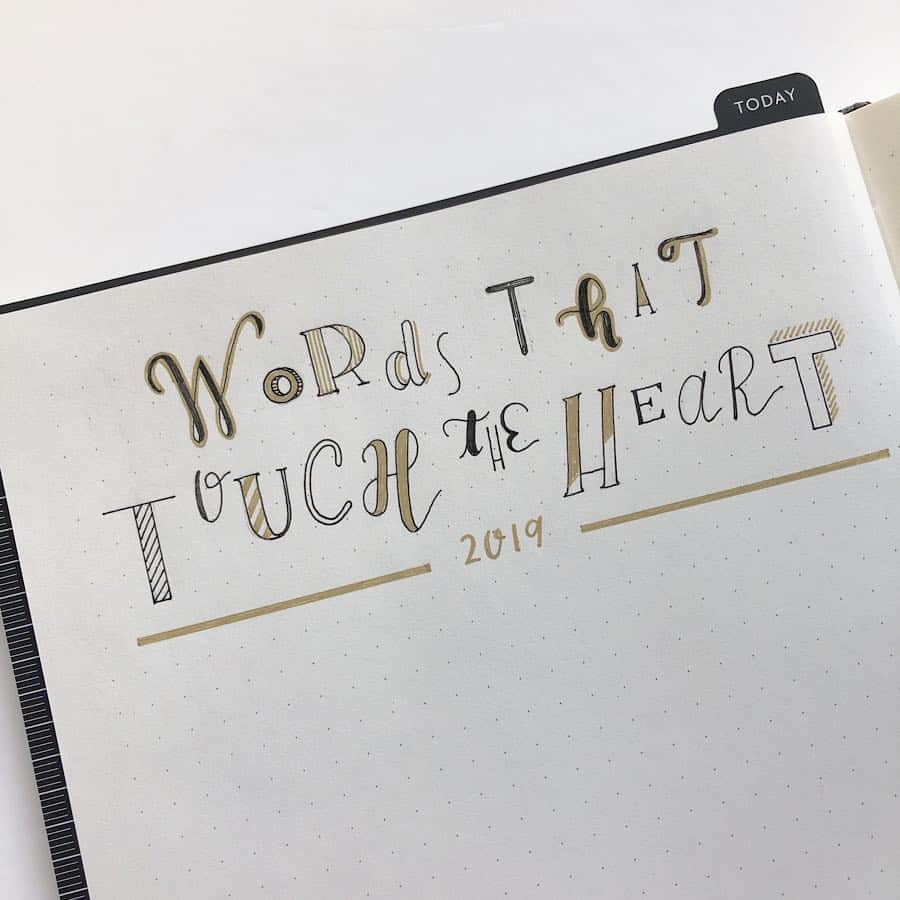 TODAY
WORds ThAT
TOUCH tHE HEaRT
2019